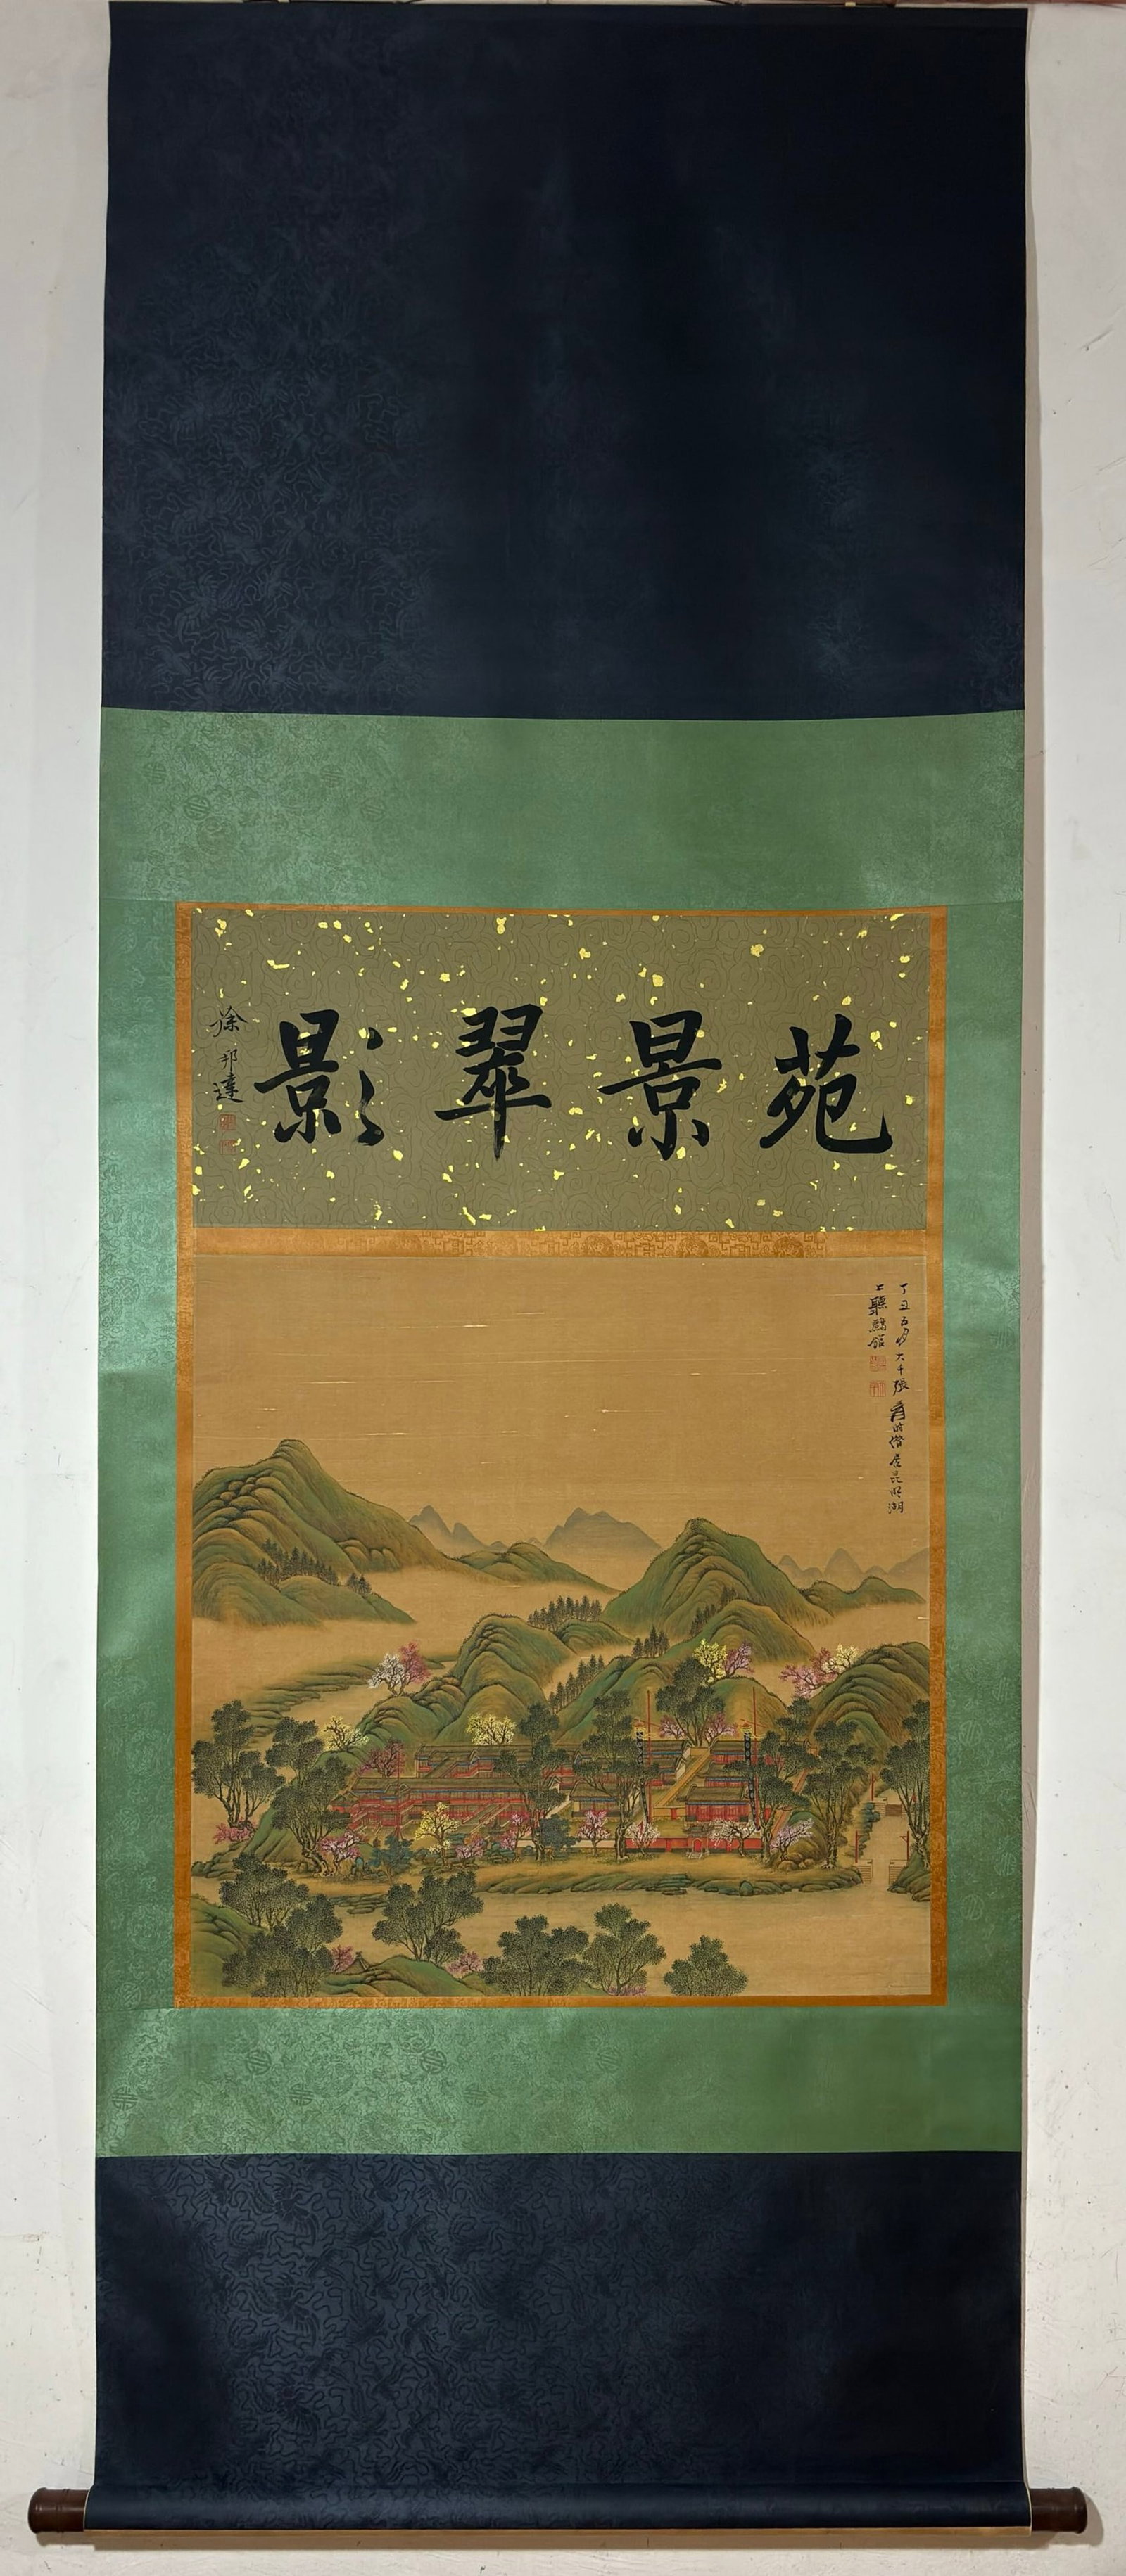 苑景翠影
徐邦達
丁丑五月大千張爰時僭居昆明湖
上聽鸝館